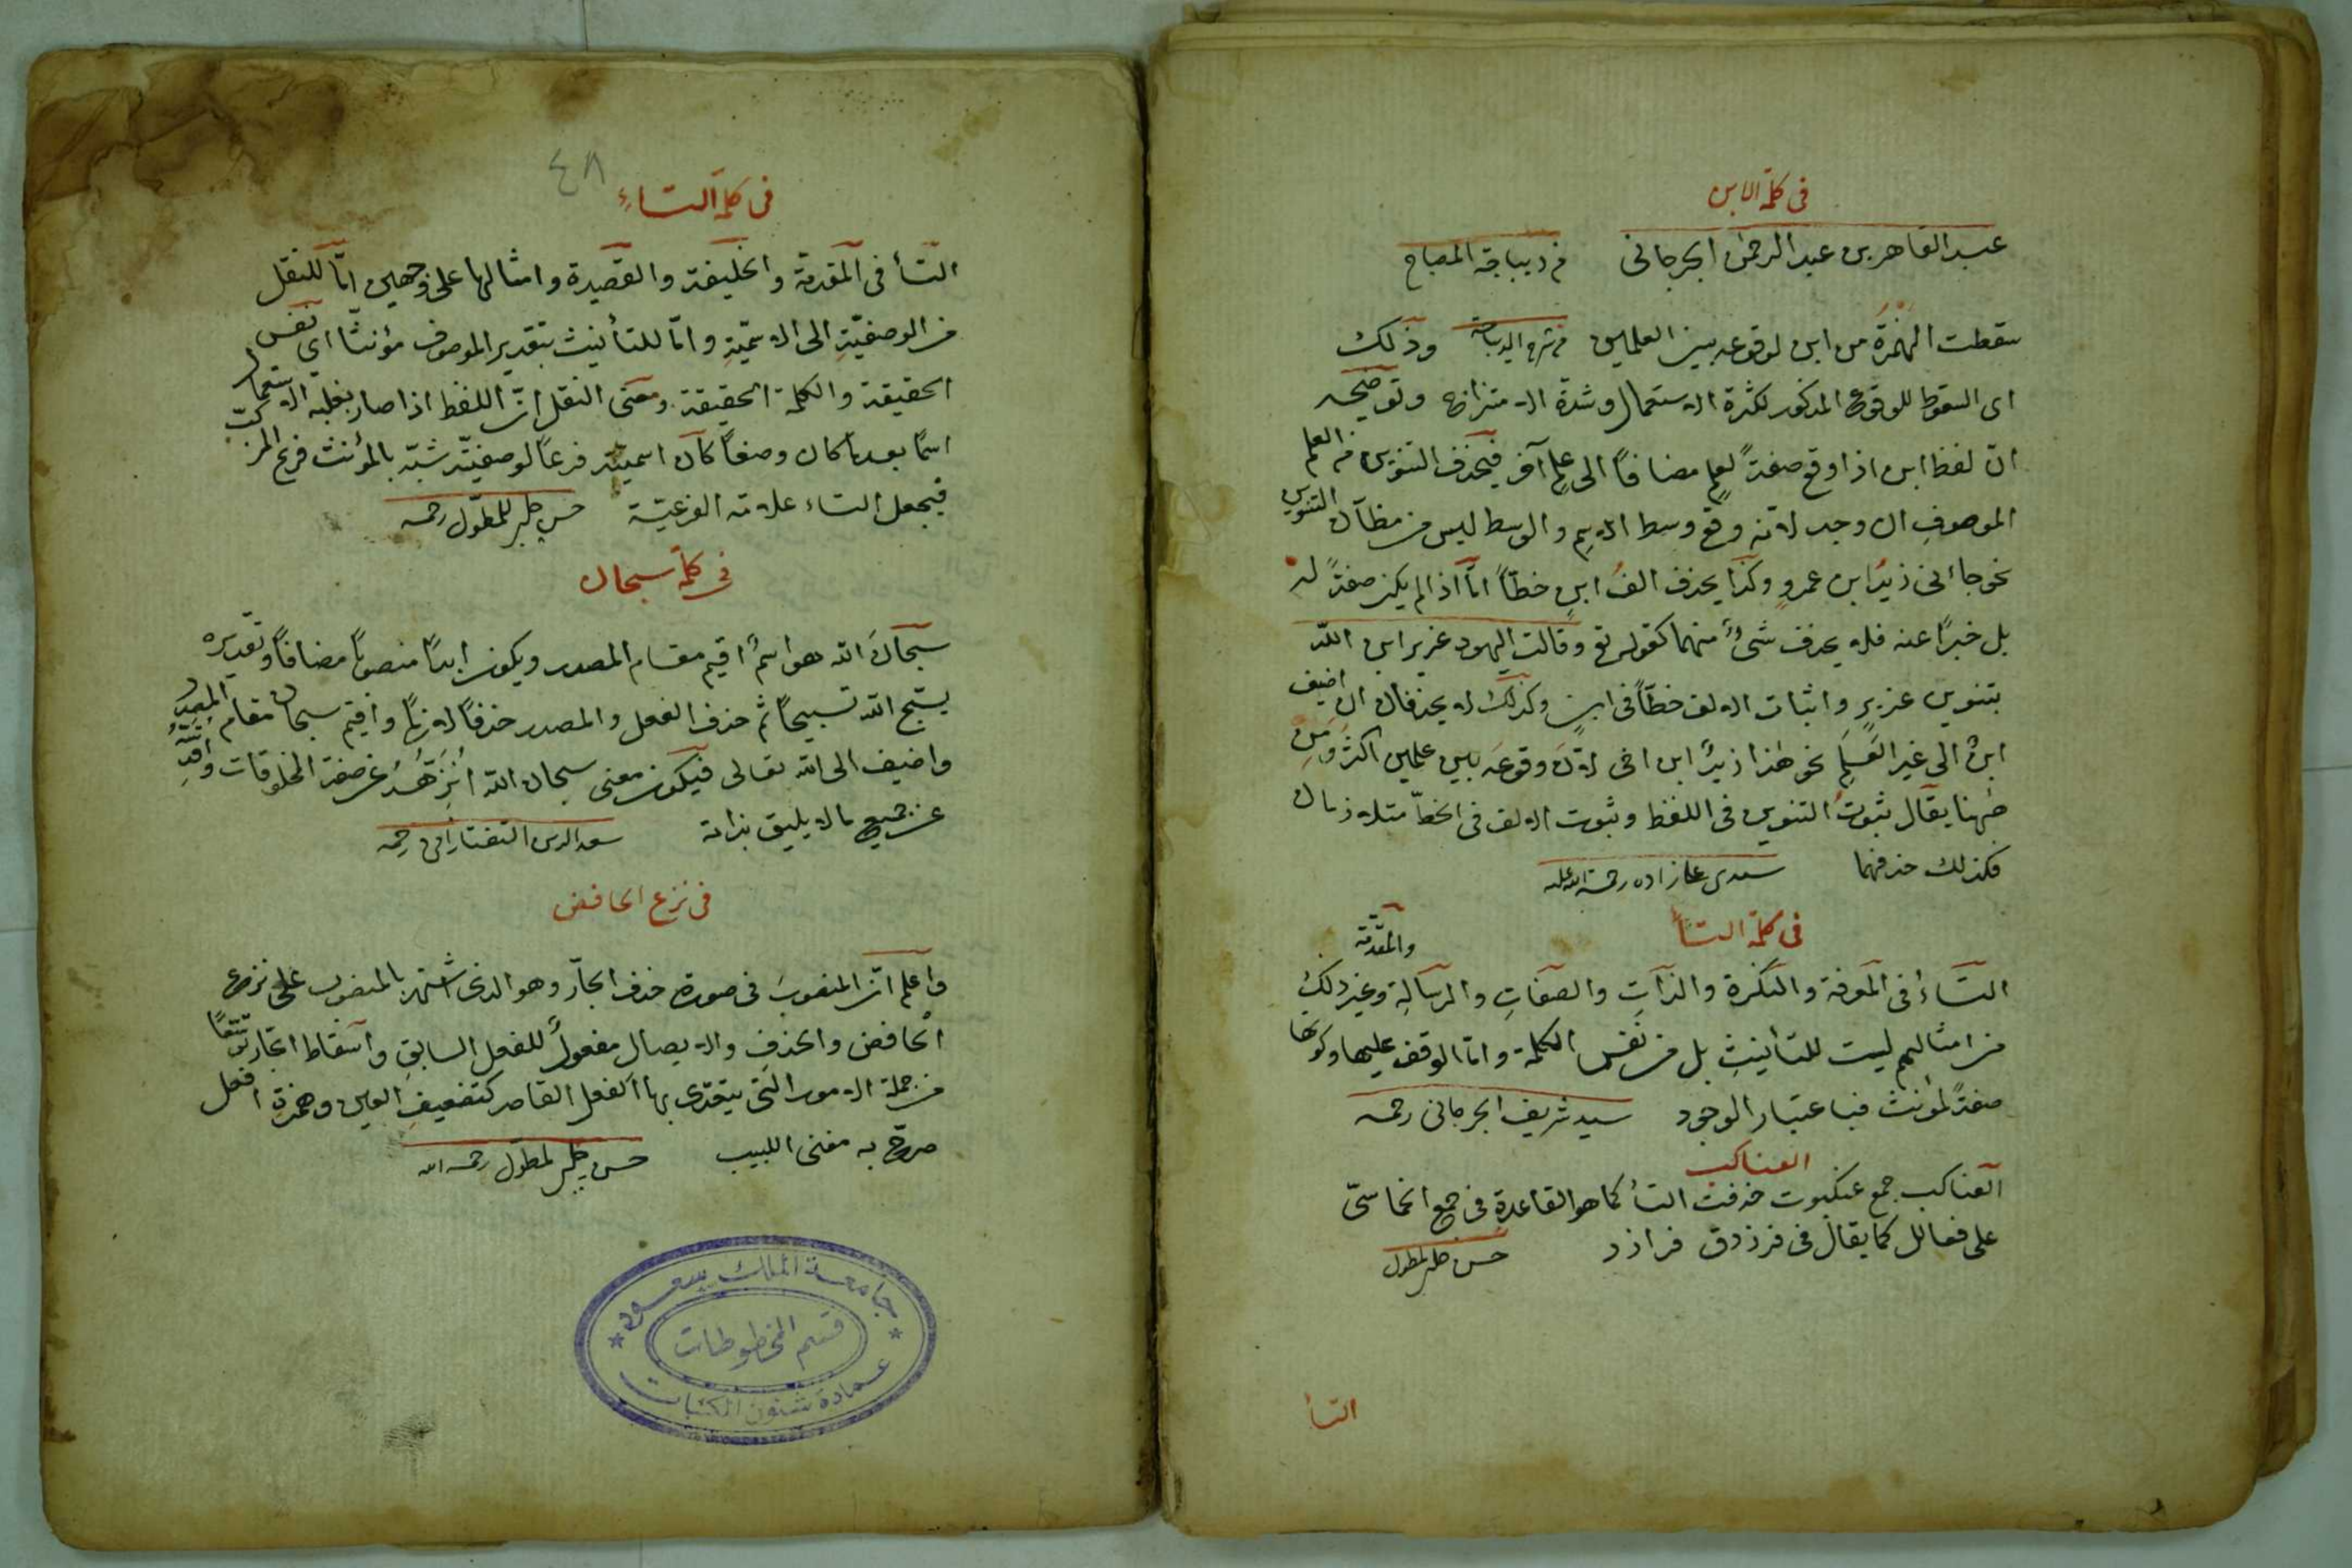 فى كلمة الابن
عبد القاهر بن عبد الرحمن الجرجانى من ديباجة المصباح
سقطت الهمزة من ابن لوقوعه بين العلمين من شرح الديباجة وذلك
اى السقوط للوقوع المذكور لكثرة الاستعمال وشدة الامتزاج وتوضيحه
انّ لفظ ابن اذا وقع صفةً لعلمٍ مضافاً الى علمٍ آخر فيحذف التنوين من العلم
الموصوف ان وجد لانه وقع وسط الاسم والوسط ليس من مظانّ التنوين
نحو جاءنى زيدُ ابن عمروٍ وكذا يحذف الفُ ابنٍ خطّاً امّا اذا لم يكن صفةً له
بل خبرًا عنه فلا يحذف شئٌ منهما كقوله تع وقالت اليهود عزير ابن اللّه
بتنوين عزيرٍ واثبات الالف خطّاً فى ابن وكذلك لا يحذفان ان اضيف
ابنٌ الى غير العَلَمِ نحو هذا زيدٌ ابن اخى لانّ وقوعَه بين علمين اكثرُ ومِن
ههنا يقال ثبوتُ التنوين فى اللفظ وثبوت الالف فى الخطّ متلازمان
فكذلك حذفهما سعدى زاده رحمة الله عليه
فى كلمة التاء
والمقدّمة
التاءُ فى المعرفة والنكرة والذاتِ والصفاتِ والرسالةِ وغير ذلك
من امثالهم ليست للتأنيثِ بل من نفس الكلمة وامّا الوقف عليها وكونها
صفةً لمؤنث فباعتبار الوجود سيد شريف الجرجانى رحمه
العناكب
العناكب جمع عنكبوت حذفت التاء كما هو القاعدة فى جمع الخماسىّ
على فعالل كما يقال فى فرزدق فرازد حسن چلبى لمطول
التاء
٤٨
فى كلمة التاءِ
التاء فى المقدمة والخليفة والقصيدة وامثالها على وجهين امّا للنقل
من الوصفيّةِ الى الاسميّةِ وامّا للتأنيث بتقدير الموصوف مؤنثًا اى نفس
الحقيقة والكلمة الحقيقة ومعنى النقل انّ اللفظ اذا صار بغلبة الاستعمال
اسمًا بعد ما كان وصفاً كان اسميته فرعًا لوصفيته شبّه بالمؤنث فرع المذكر
فيجعل التاء علامة الفرعيّة حسن چلبى للمطوّل رحمه
فى كلمة سبحان
سبحانَ الله هو اسمٌ اقيم مقام المصدر ويكون ابدًا منصوبًا مضافاً وتقديره
يسبّح الله تسبيحاً ثم حذف الفعل والمصدر حذفاً لازمًا واقيم سبحان مقام المصدر
واضيف الى الله تعالى فيكون معنى سبحان الله انزّهُه عن صفة المخلوقات
عن جميع ما لا يليق بذاته سعد الدين التفتازانى رحمه
فى نزع الخافض
واعلم انّ المنصوبَ فى صورة حذف الجارّ وهو الذى اشتهر بالمنصوب على نزع
الخافض والحذفِ والايصال مفعولٌ للفعل السابقِ واسقاط الجار توسّعًا
من جملة الامور التى يتعدّى بها الفعل القاصر كتضعيفِ العين وهمزة افعل
صرّح به مغنى اللبيب حسن چلبى لمطول رحمه الله
جامعة الملك سعود
قسم المخطوطات
عمادة شئون المكتبات